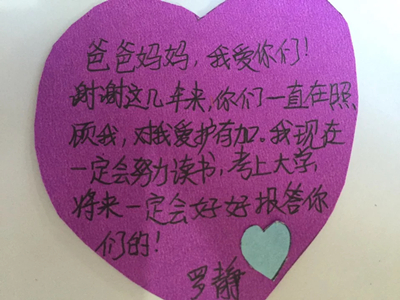 爸爸妈妈,我爱你们!
谢谢这几年来,你们一直在照
顾我,对我爱护有加。我现在
一定会努力读书,考上大学,
将来一定会好好报答你
们的!
罗静